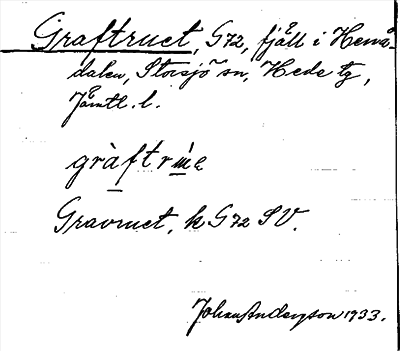 Graftruet, G72, fjäll i Hemå-
dalen, Storsjö sn, Hede tg,
Jämtl. l.
Gravruet, k G72 SV.
Johan Anderson 1933.